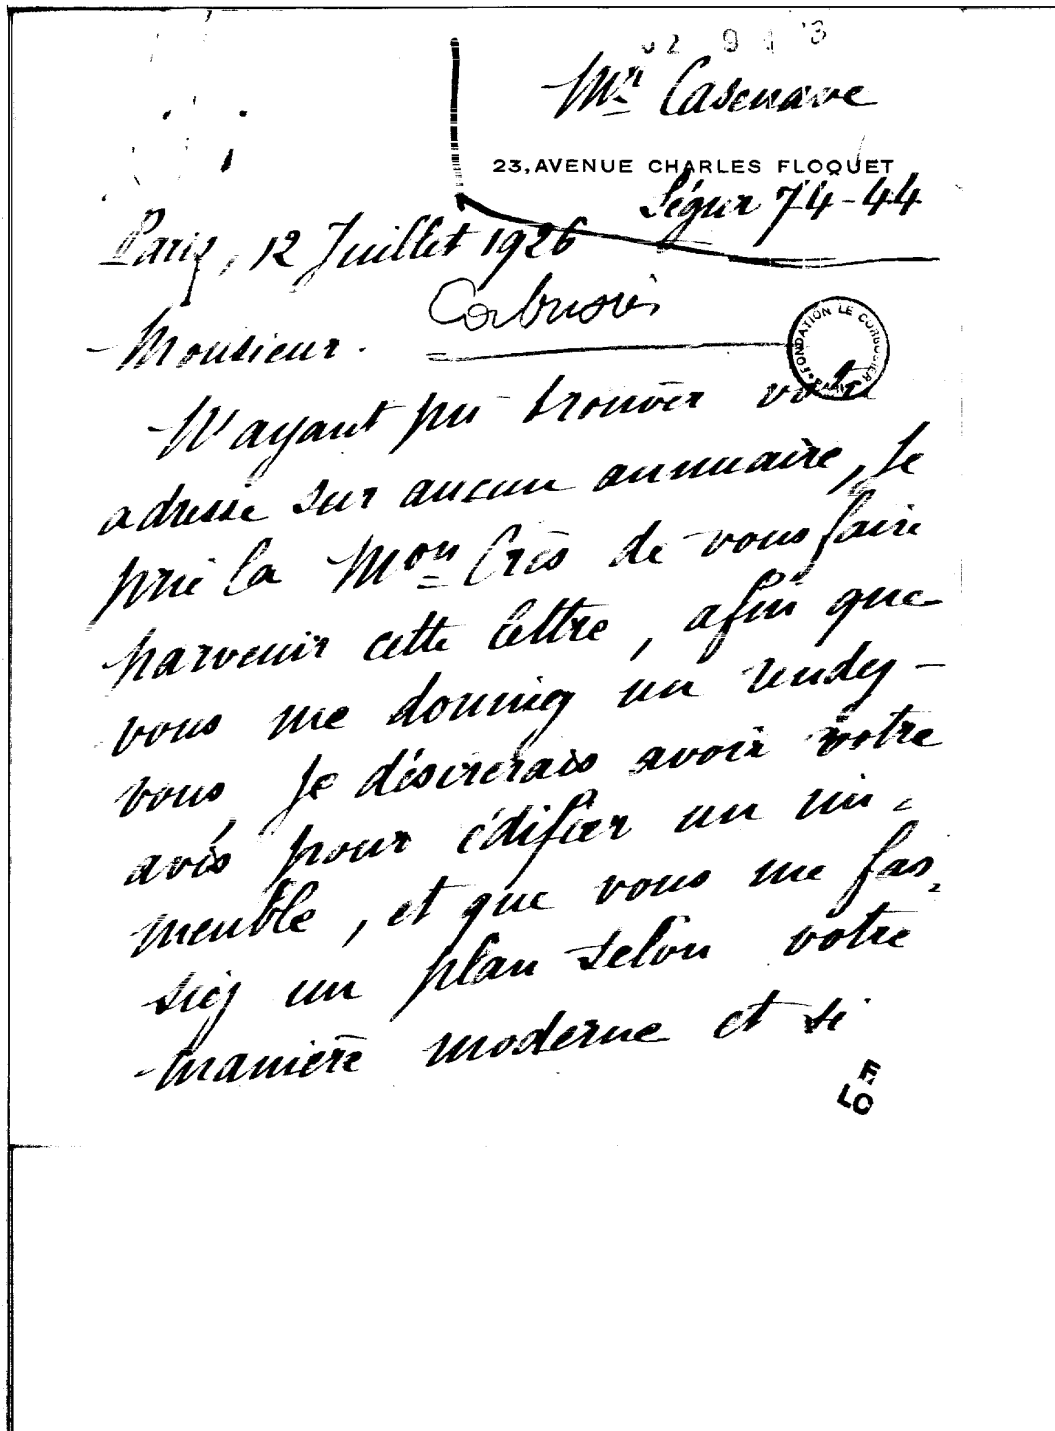 Mr Casenave
23, AVENUE CHARLES FLOQUET
Ségur 74-44
Paris, 12 Juillet 1926
Corbusier
Monsieur.
FONDATION LE CORBUSIER PARIS
N'ayant pu trouver votre
adresse sur aucun annuaire, je
prie la Mon Crès de vous faire
parvenir cette lettre, afin que
vous me donniez un rendez-
vous, Je désirerais avoir votre
avis pour édifier un im-
meuble, et que vous me fas-
siez un plan selon votre
manière moderne et si
FLC